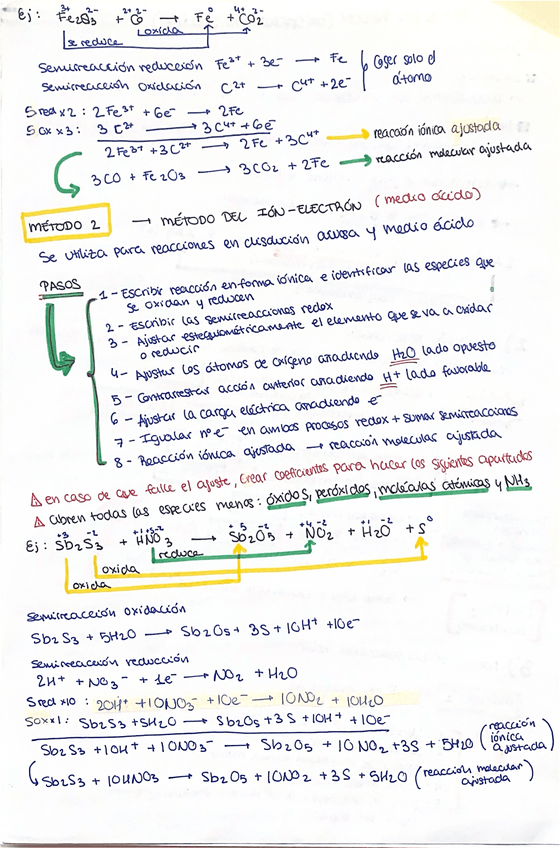 Ej: Fe₂O₃ + CO → Fe + CO₂
3+ 2- 2+ 2- 0 4+ 2-
oxida
se reduce
Semirreacción reducción Fe³⁺ + 3e⁻ → Fe
Semirreacción Oxidación C²⁺ → C⁴⁺ + 2e⁻
Coger solo el
átomo
S red x2: 2Fe³⁺ + 6e⁻ → 2Fe
S ox x3: 3C²⁺ → 3C⁴⁺ + 6e⁻
2Fe³⁺ + 3C²⁺ → 2Fe + 3C⁴⁺ → reacción iónica ajustada
3CO + Fe₂O₃ → 3CO₂ + 2Fe → reacción molecular ajustada
MÉTODO 2 → MÉTODO DEL IÓN-ELECTRÓN (medio ácido)
Se utiliza para reacciones en disolución acuosa y medio ácido
PASOS
1 - Escribir reacción en forma iónica e identificar las especies que
se oxidan y reducen
2 - Escribir las semirreacciones redox
3 - Ajustar estequiométricamente el elemento que se va a oxidar
o reducir
4 - Ajustar los átomos de oxígeno anadiendo H₂O lado opuesto
5 - Contrarrestar acción anterior anadiendo H⁺ lado favorable
6 - Ajustar la carga eléctrica anadiendo e⁻
7 - Igualar nº e⁻ en ambos procesos redox + sumar semirreacciones
8 - Reacción iónica ajustada → reacción molecular ajustada
⚠ en caso de que falle el ajuste, crear coeficientes para hacer los siguientes apartados
⚠ abren todas las especies menos: óxidos, peróxidos, moléculas atómicas y NH₃
Ej: Sb₂S₃ + HNO₃ → Sb₂O₅ + NO₂ + H₂O + S
+3 -2 +1 +5 -2 +5 -2 +4 -2 +1 -2 0
reduce
oxida
oxida
Semirreacción oxidación
Sb₂S₃ + 5H₂O → Sb₂O₅ + 3S + 10H⁺ + 10e⁻
Semirreacción reducción
2H⁺ + NO₃⁻ + 1e⁻ → NO₂ + H₂O
S red x10: 20H⁺ + 10NO₃⁻ + 10e⁻ → 10NO₂ + 10H₂O
S ox x1: Sb₂S₃ + 5H₂O → Sb₂O₅ + 3S + 10H⁺ + 10e⁻
Sb₂S₃ + 10H⁺ + 10NO₃⁻ → Sb₂O₅ + 10NO₂ + 3S + 5H₂O (reacción iónica ajustada)
Sb₂S₃ + 10HNO₃ → Sb₂O₅ + 10NO₂ + 3S + 5H₂O (reacción molecular ajustada)